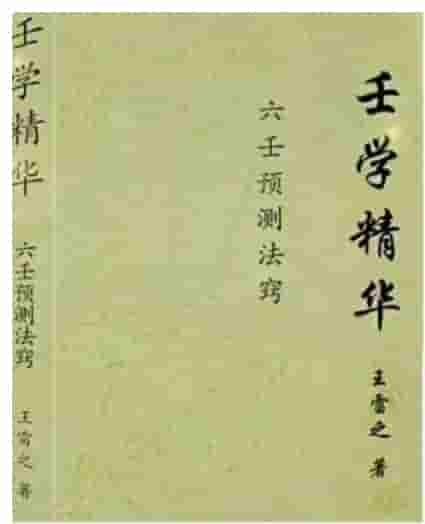 壬学精华
六壬预测法窍
王雷之 著
壬学精华
六壬预测法窍
王雷之 著